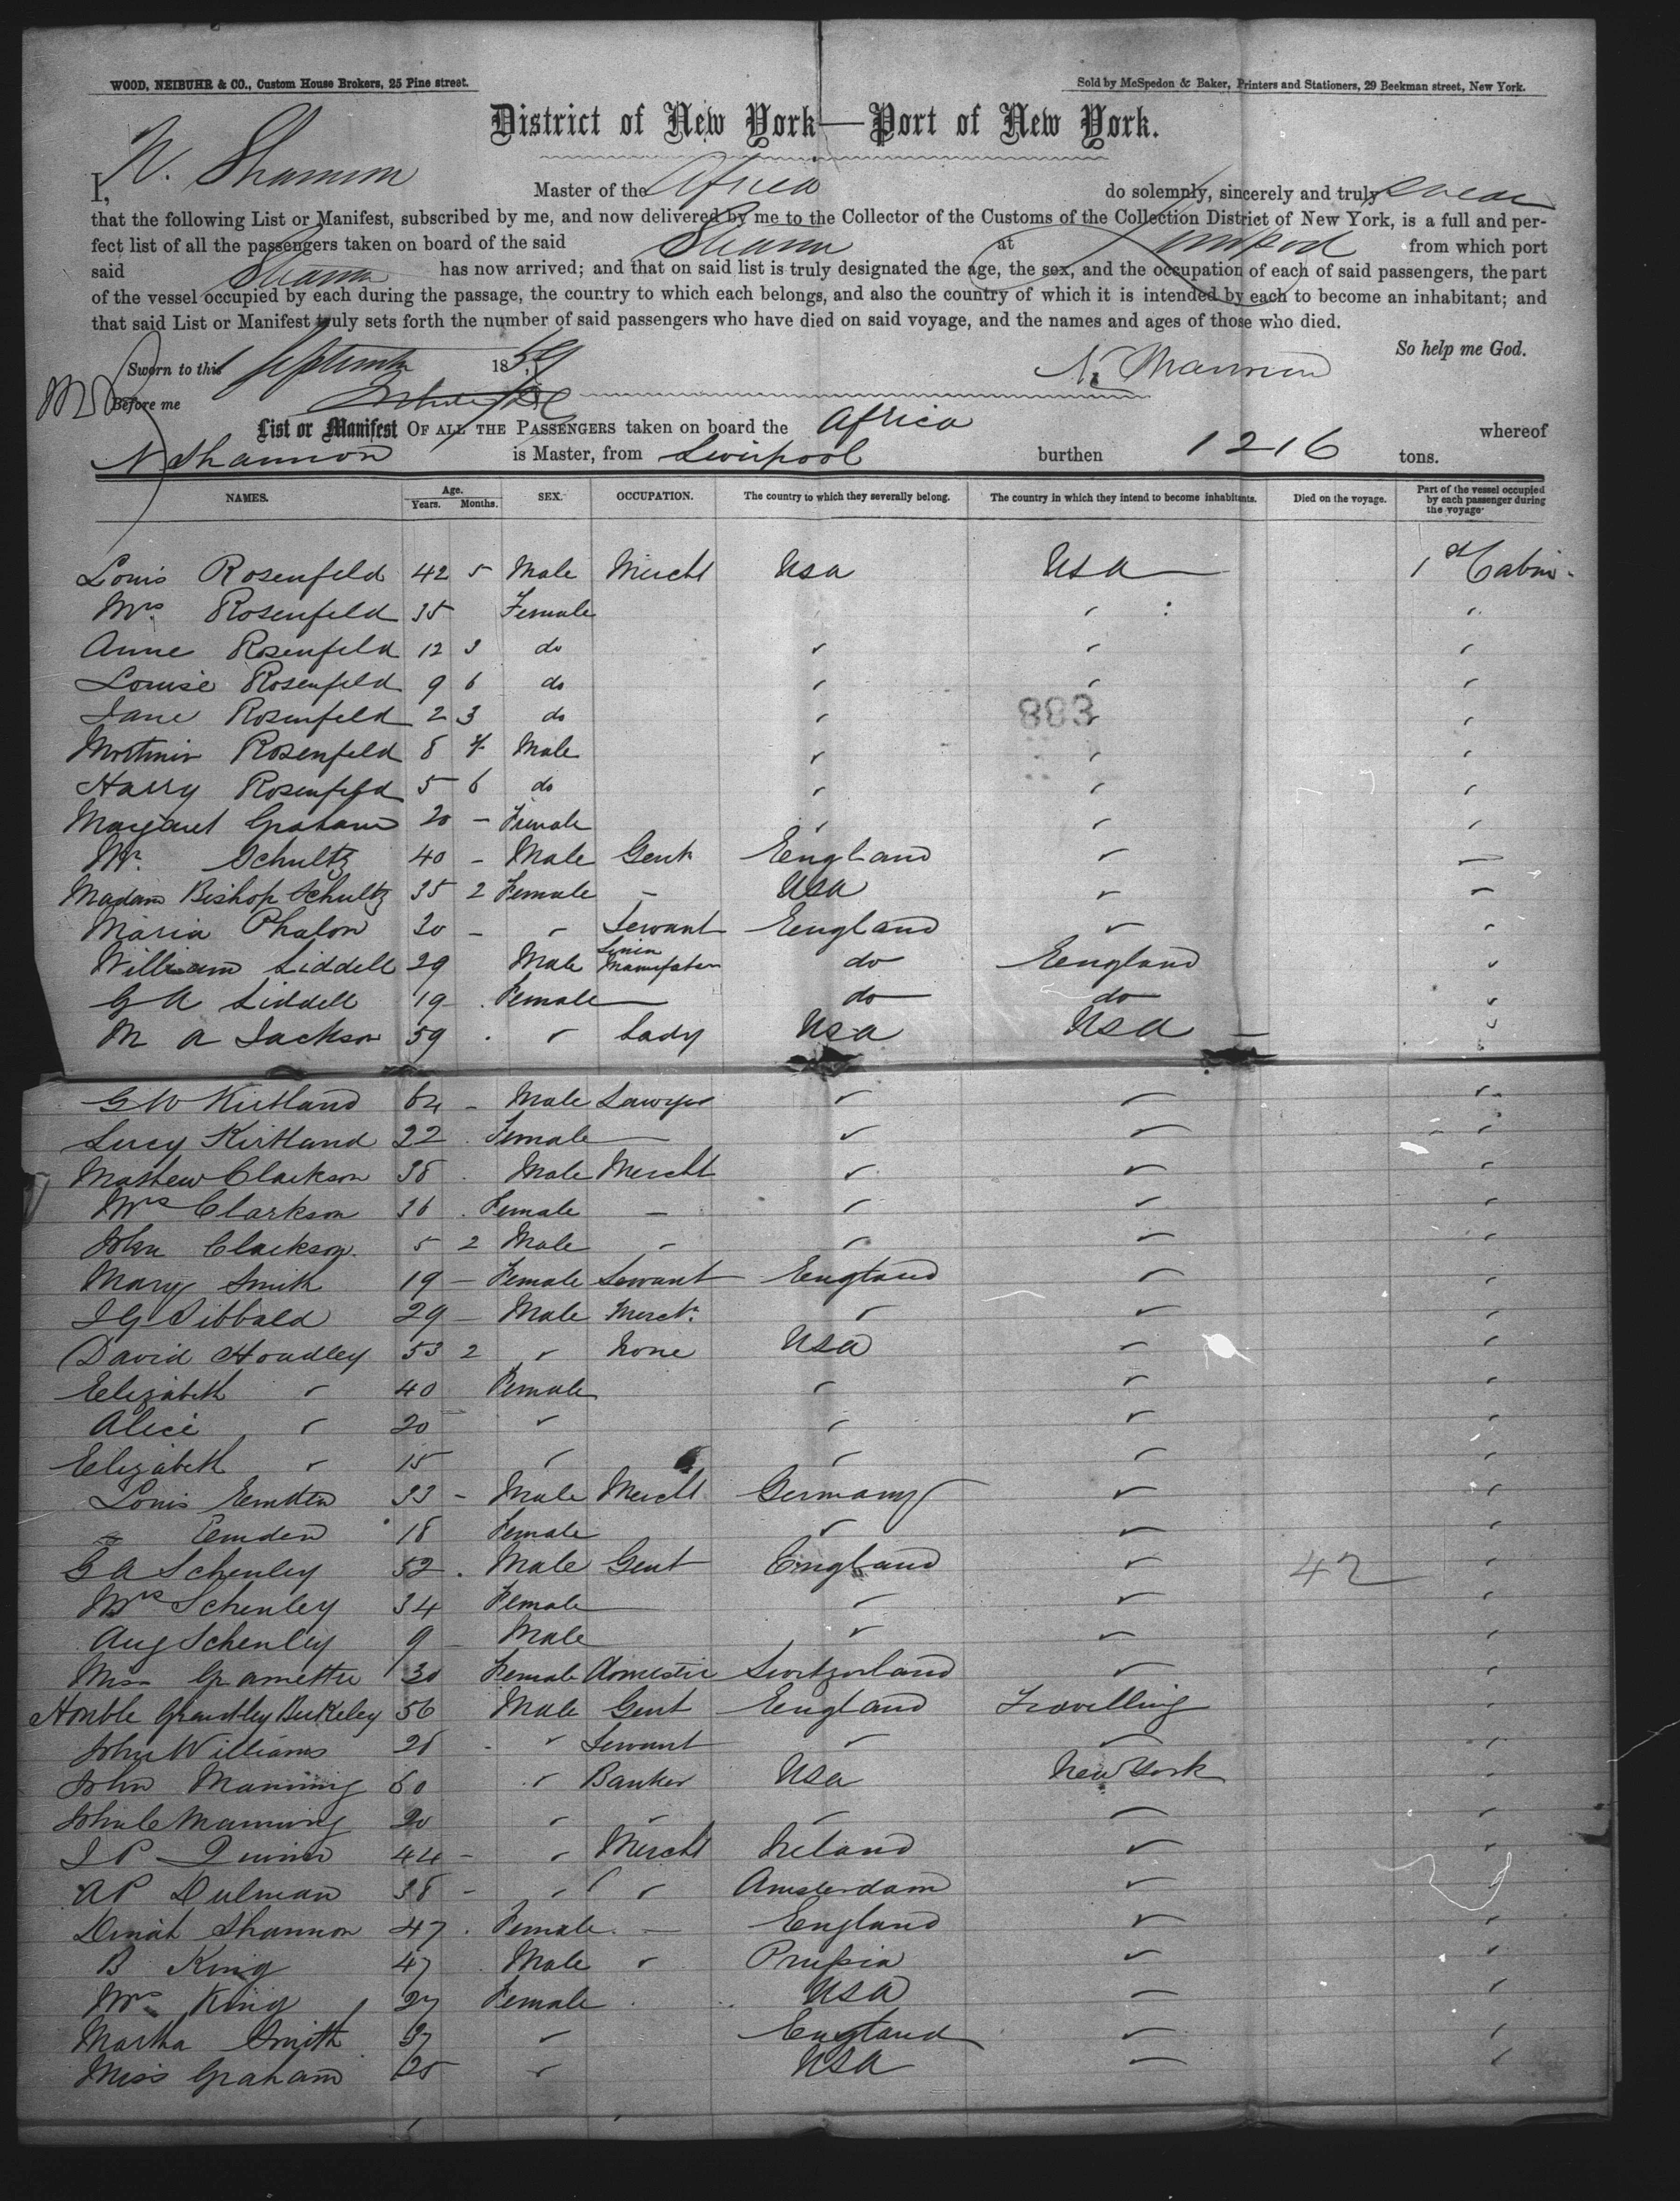 WOOD, NEIBUHR & CO., Custom House Brokers, 25 Pine street.
Sold by McSpedon & Baker, Printers and Stationers, 29 Beekman street, New York.
District of New York—Port of New York.
I, N. Shannon Master of the Africa do solemnly, sincerely and truly swear
that the following List or Manifest, subscribed by me, and now delivered by me to the Collector of the Customs of the Collection District of New York, is a full and per-
fect list of all the passengers taken on board of the said Steamer at Liverpool from which port
said Steamer has now arrived; and that on said list is truly designated the age, the sex, and the occupation of each of said passengers, the part
of the vessel occupied by each during the passage, the country to which each belongs, and also the country of which it is intended by each to become an inhabitant; and
that said List or Manifest truly sets forth the number of said passengers who have died on said voyage, and the names and ages of those who died.
So help me God.
Sworn to this 1 September 1859 N. Shannon
Before me
List or Manifest OF ALL THE PASSENGERS taken on board the Africa whereof
N Shannon is Master, from Liverpool burthen 1216 tons.
NAMES. Age. Years. Months. SEX. OCCUPATION. The country to which they severally belong. The country in which they intend to become inhabitants. Died on the voyage. Part of the vessel occupied by each passenger during the voyage
Louis Rosenfeld 42 5 Male Mercht USA USA 1st Cabin
Mrs. Rosenfeld 35 Female "
Anne Rosenfeld 12 3 do " " "
Louise Rosenfeld 9 6 do " " "
Jane Rosenfeld 2 3 do " " "
883
Mortimer Rosenfeld 8 4 Male " " "
Harry Rosenfeld 5 6 do " " "
Margaret Graham 20 - Female " " "
Mr. Schultz 40 - Male Gent England " "
Madam Bishop Schultz 35 2 Female - USA " "
Maria Phalon 30 - " Servant England " "
William Liddell 29 Male Linen Manufactr do England "
G A Liddell 19 Female do do "
M A Jackson 59 " Lady USA USA "
G W Kirtland 64 - Male Lawyer " " "
Lucy Kirtland 22 Female " " "
Mathew Clarkson 38 Male Mercht " " "
Mrs Clarkson 36 Female - " " "
John Clarkson 5 2 Male - " " "
Mary Smith 19 - Female Servant England " "
J G Sibbald 29 - Male Merct. " " "
David Hoadley 53 2 " None USA " "
Elizabeth " 40 Female " " "
Alice " 20 " " " "
Elizabeth " 15 " " " "
Louis Emden 33 - Male Mercht Germany " "
Emden 18 Female " " "
G A Schenley 52 Male Gent England " 42 "
Mrs Schenley 34 Female " " "
Aug Schenley 9 - Male " " "
Miss 30 Female Domestic Switzerland " "
Honble Grantley Berkeley 56 Male Gent England Travelling "
John Williams 28 " Servant " " "
John Manning 60 " Banker USA New York "
John C Manning 20 " " " " "
J P Quinn 44 - " Mercht Ireland " "
A P Dulman 38 - " " Amsterdam " "
Dinah Shannon 47 Female - England " "
B King 47 Male " Prussia " "
Mrs King 27 Female USA " "
Martha Smith 37 " England " "
Miss Graham 25 " USA " "